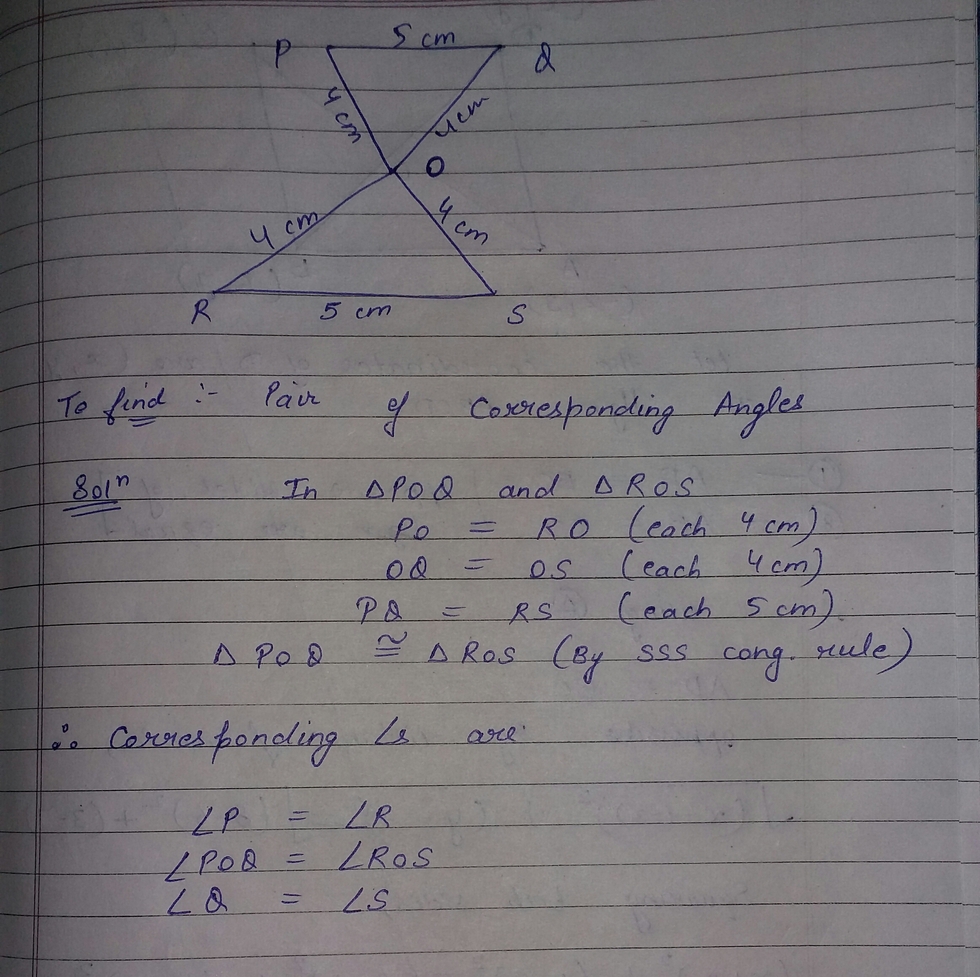 5 cm
P
Q
4 cm
4 cm
O
4 cm
4 cm
R
5 cm
S
To find :- Pair of Corresponding Angles
Solⁿ In ΔPOQ and ΔROS
PO = RO (each 4 cm)
OQ = OS (each 4 cm)
PQ = RS (each 5 cm)
Δ POQ ≅ ΔROS (By SSS cong. rule)
∴ Corresponding ∠s are
∠P = ∠R
∠POQ = ∠ROS
∠Q = ∠S